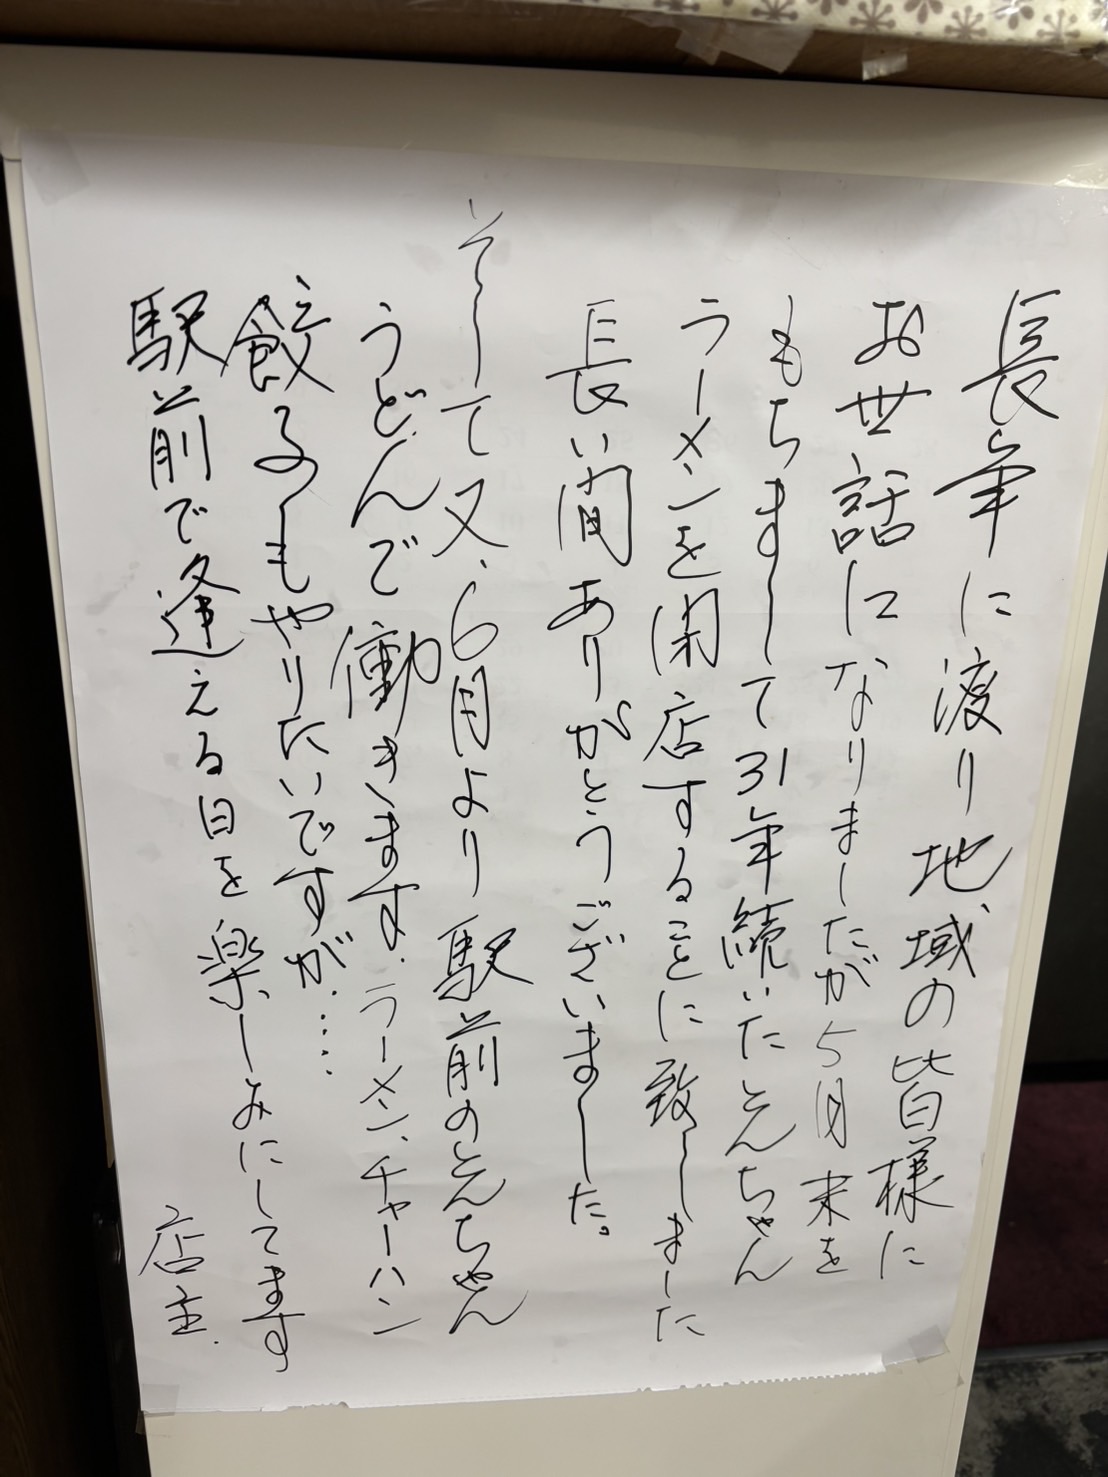 長年に渡り地域の皆様に
お世話になりましたが5月末を
もちまして31年続いたとんちゃん
ラーメンを閉店することに致しました
長い間ありがとうございました。
そして又、6月より駅前のとんちゃん
うどんで働きます。ラーメン、チャーハン
餃子もやりたいですが‥‥
駅前で逢える日を楽しみにしてます
店主.